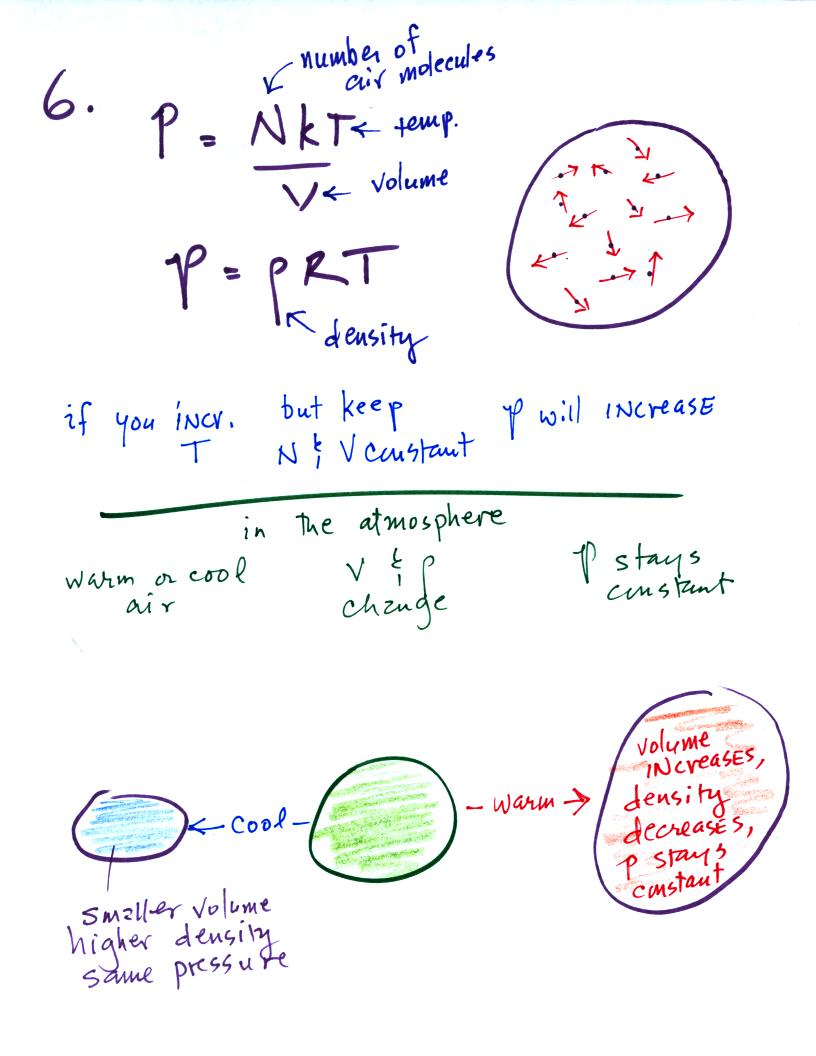 6.
number of
air molecules
P = NkT ← temp.
V ← volume
p = ρRT
density
if you incr. but keep p will increase
T N & V constant
in the atmosphere
warm or cool V & ρ p stays
air change constant
volume
increases,
density
decreases,
p stays
constant
← cool – – warm →
smaller volume
higher density
same pressure